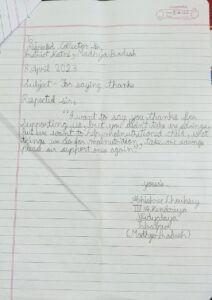 To
Respected Collector Sir,
District Katni, Madhya Pradesh
8 April 2023
Subject - For saying thanks
Respected sir,
"I want to say you, thanks for
supporting us, but you didn't take us advange,
but we want to help malnutritional child, what
things we do for malnutrition, take our advange
plead sir support once again."
yours
Abhishree Choubey
III A Kendariya
Vidyalaya
(Madhya Pradesh)